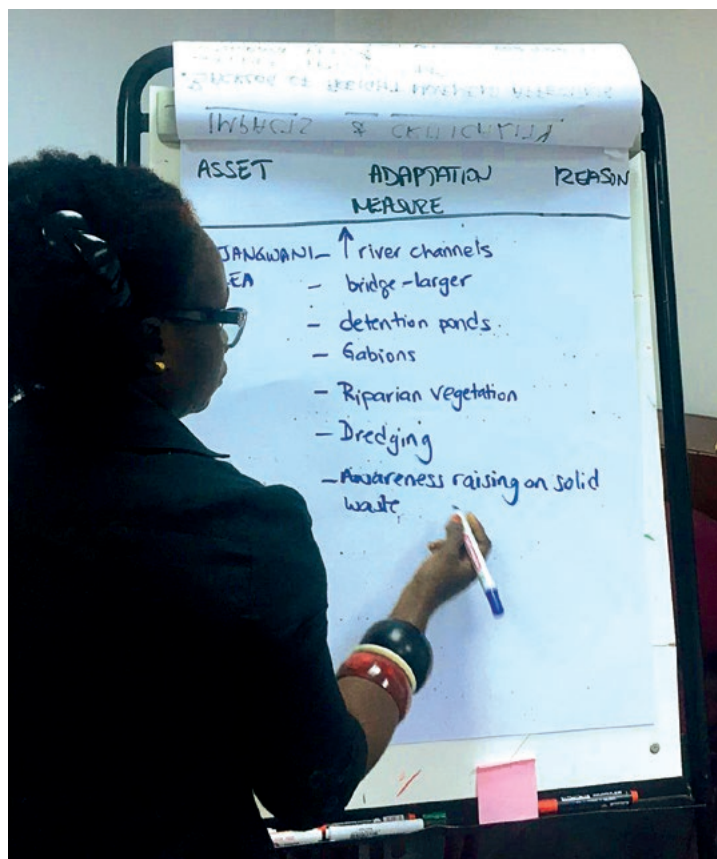 IMPACTS & CRITICALITY
ASSET ADAPTATION REASON
MEASURE
JANGWANI – ↑ river channels
– bridge - larger
– detention ponds.
– Gabions
– Riparian vegetation
– Dredging
– Awareness raising on solid
waste